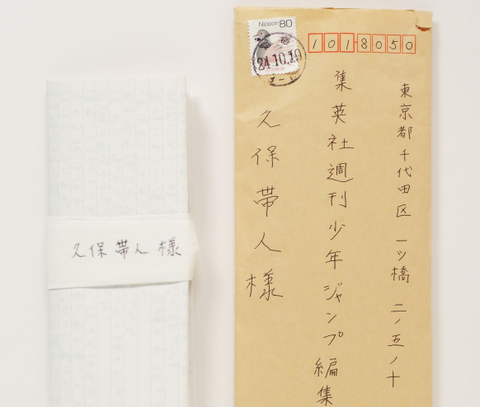 久保帯人様
Nippon 80
24.10.10
1018050
東京都千代田区 一ツ橋 二ノ五ノ十
集英社週刊少年ジャンプ編集
久保帯人様